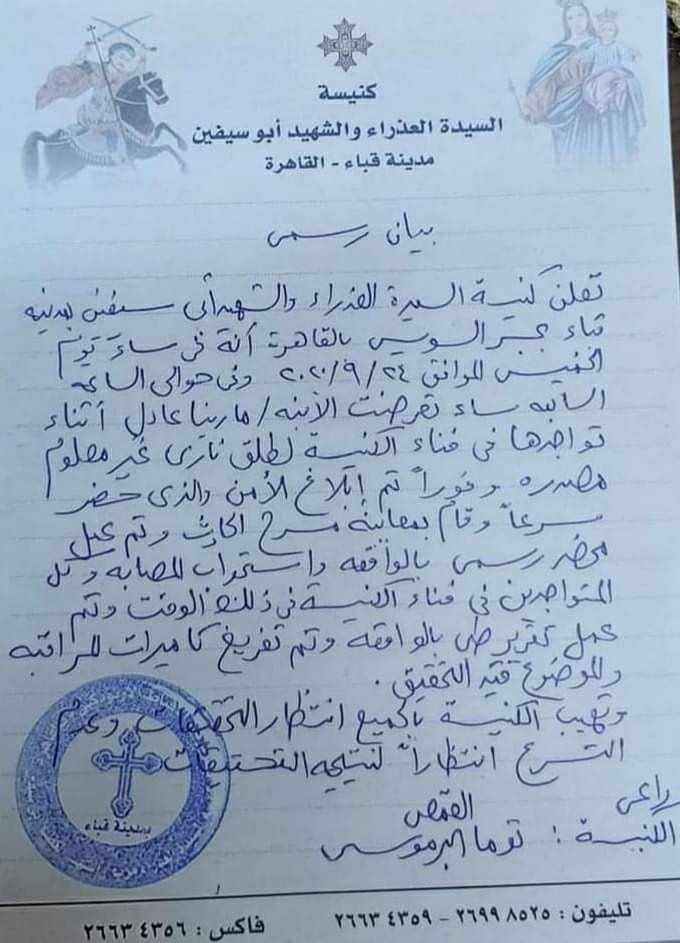 كنيسة
السيدة العذراء والشهيد أبو سيفين
مدينة قباء - القاهرة
بيان رسمى
تعلن كنيسة السيدة العذراء والشهيد أبى سيفين بمدينة
قباء بجسر السويس بالقاهرة أنه فى مساء يوم
الخميس الموافق ٢٤/٩/٢٠٢٠ وفى حوالى الساعة
السابعه مساء تعرضت الابنه/ مارينا عادل أثناء
تواجدها فى فناء الكنيسة لطلق نارى غير معلوم
مصدره وفوراً تم إبلاغ الأمن والذى حضر
سرعاً وقام بمعاينة مسرح الحادث وتم عمل
محضر رسمى بالواقعه واستجواب المصابه وكل
المتواجدين فى فناء الكنيسة فى ذلك الوقت وتم
عمل تقرير طبى بالواقعه وتم تفريغ كاميرات المراقبه
والموضوع قيد التحقيق .
وتهيب الكنيسة بالجميع انتظار التحقيقات وعدم
التسرع انتظاراً لنتيجه التحقيقات
راعى
الكنيسة : القمص توما البرموسى
مدينة قباء
تليفون : ٢٦٩٩ ٨٥٢٥ - ٢٦٦٣ ٤٣٥٩ فاكس : ٢٦٦٣ ٤٣٥٦